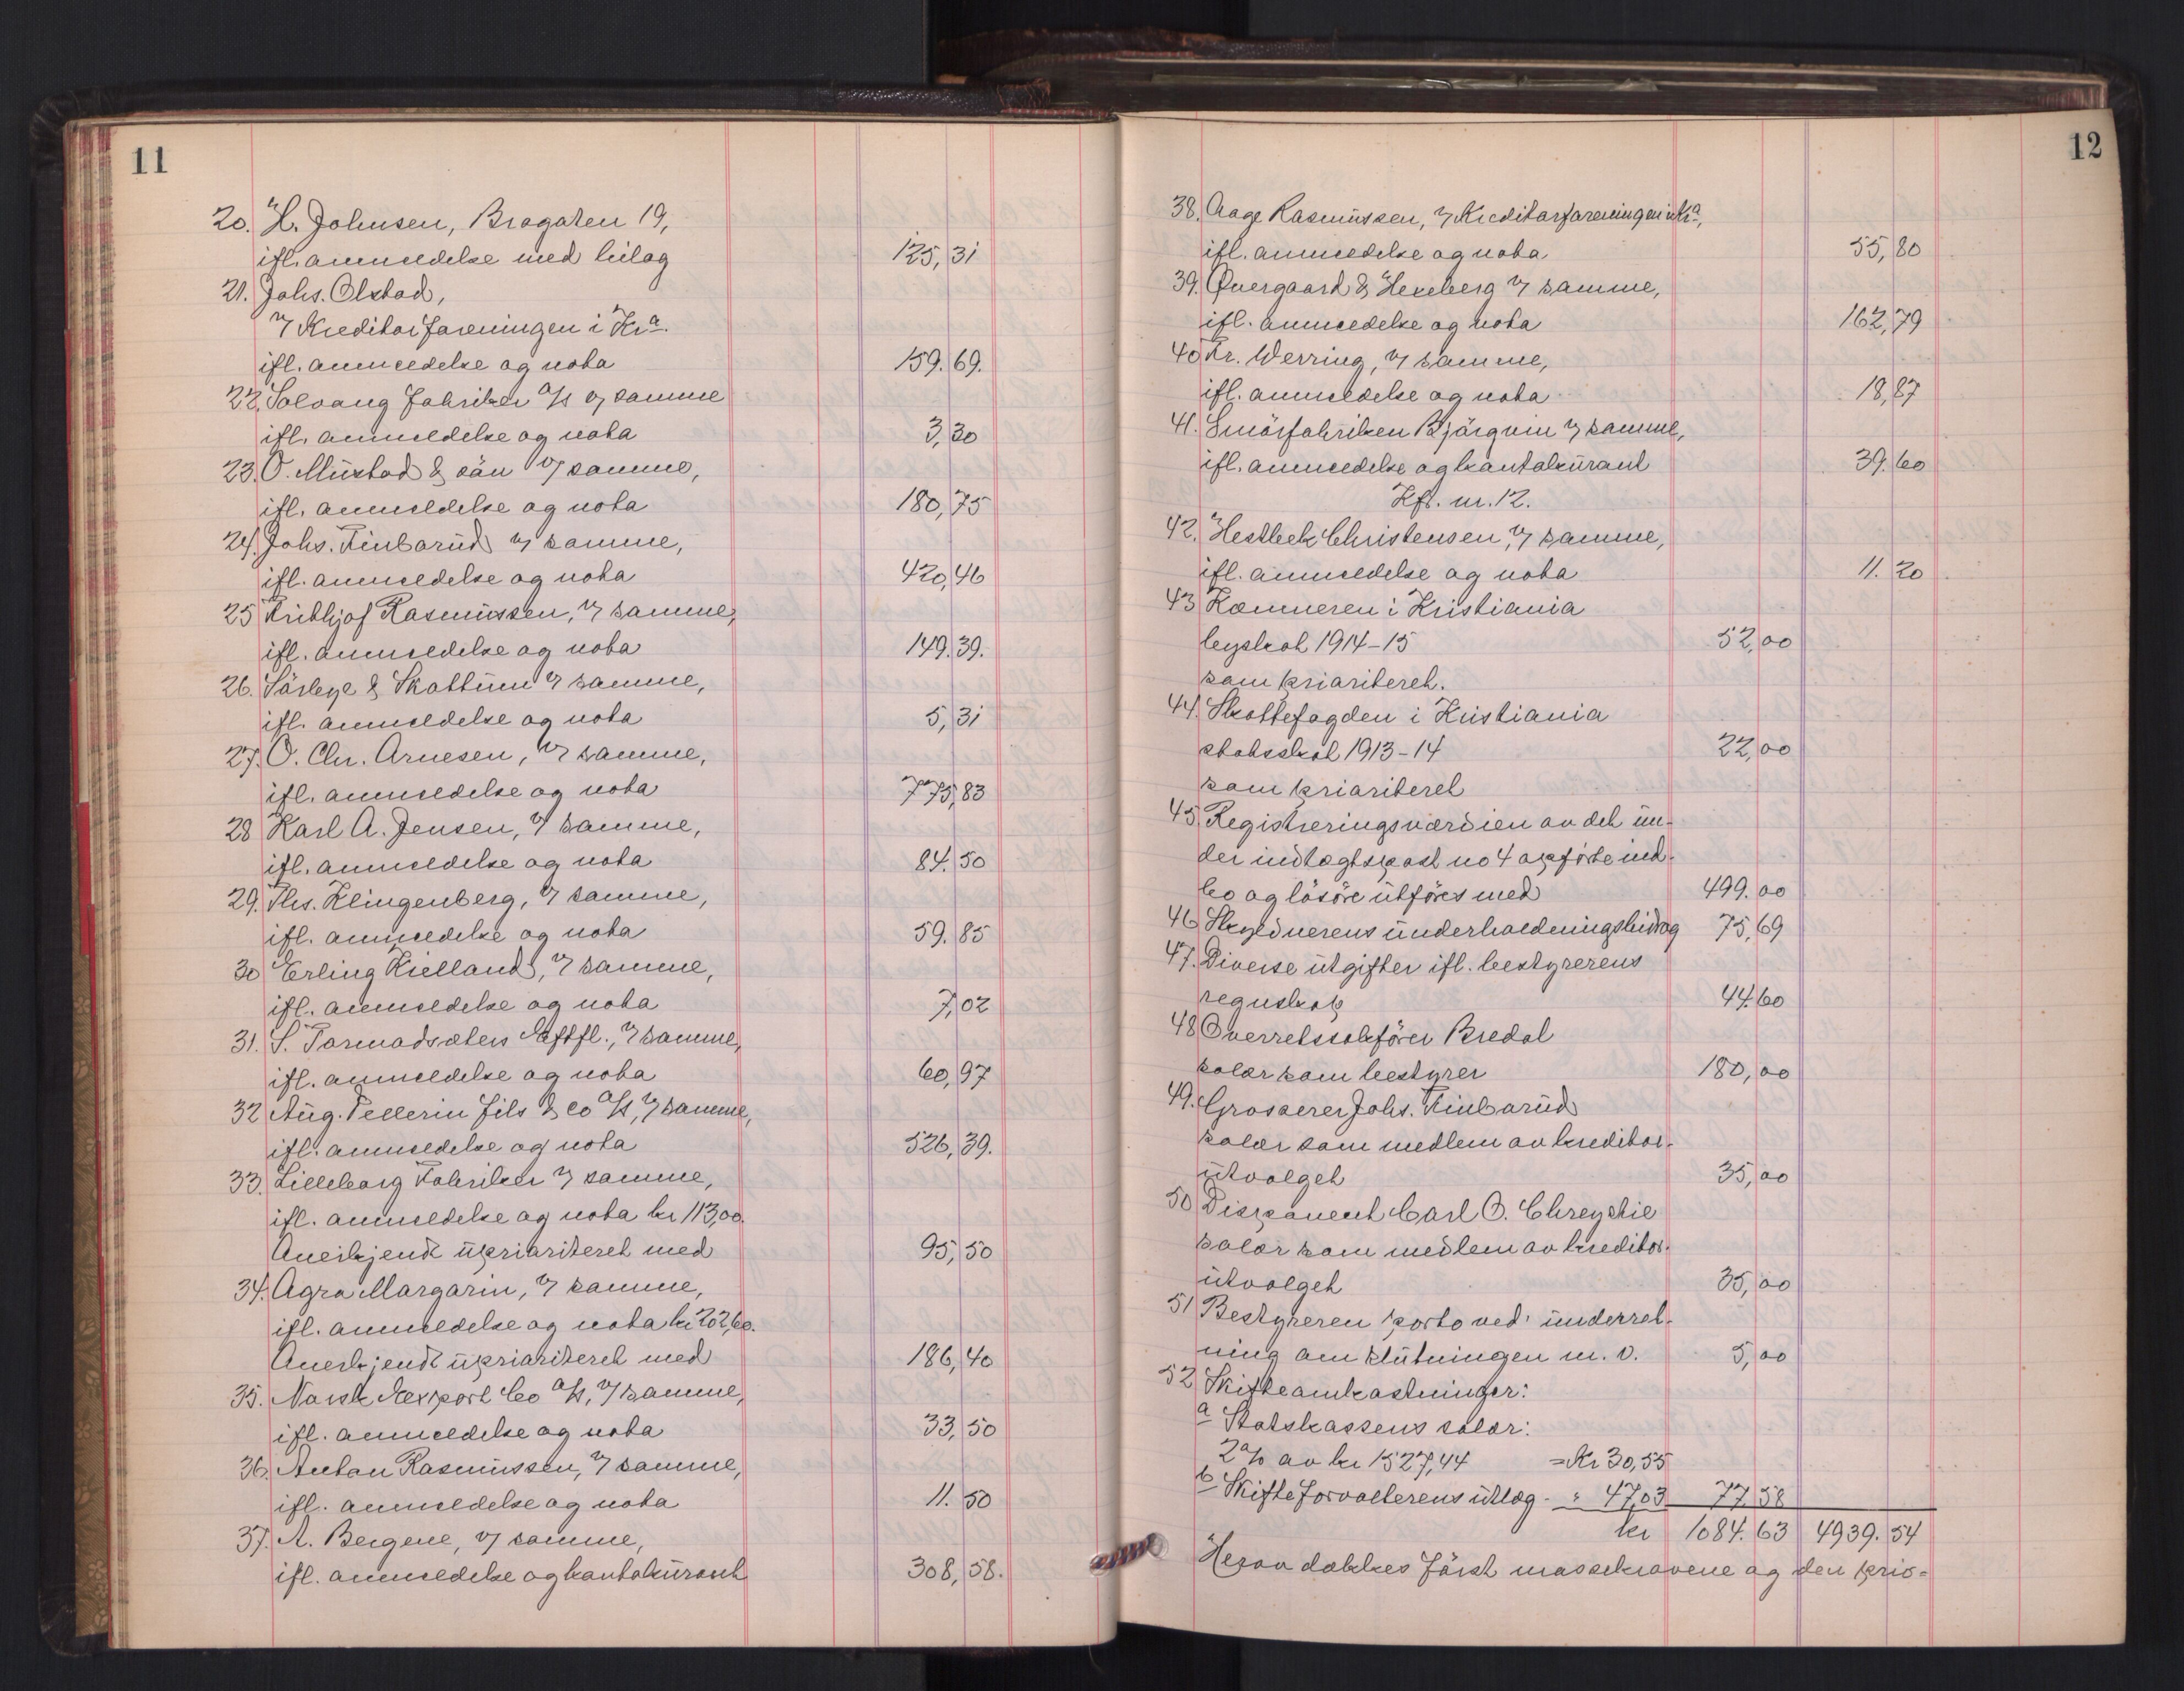 11
20. H. Johnsen, Brogaten 19,
ifl. anmeldelse med bilag 125,31
21. Johs. Olstad,
v/ Kreditorforeningen i Kra.
ifl. anmeldelse og nota 159.69.
22. Solvang Fabriker A/S v/ samme
ifl. anmeldelse og nota 3,30
23. O. Mustad & sön v/ samme,
ifl. anmeldelse og nota 180,75
24. Johs. Finborud v/ samme,
ifl. anmeldelse og nota 420,46
25 Frithjof Rasmussen, v/ samme,
ifl. anmeldelse og nota 149.39.
26. Sörbye & Skottum v/ samme,
ifl. anmeldelse og nota 5,31
27. O. Chr. Arnesen, v/ samme,
ifl. anmeldelse og nota 775,83
28 Karl A. Jensen, v/ samme,
ifl. anmeldelse og nota 84.50
29. Ths. Klingenberg, v/ samme,
ifl. anmeldelse og nota 59.85
30 Erling Kielland, v/ samme,
ifl. anmeldelse og nota 7,02
31. S. Tormodsæters Eftfl., v/ samme,
ifl. anmeldelse og nota 60,97
32 Aug. Pellerin fils & Co A/S, v/ samme,
ifl. anmeldelse og nota 526,39.
33. Lilleborg Fabriker v/ samme,
ifl. anmeldelse og nota kr 113,00.
Anerkjendt uprioriteret med 95,50
34. Agra Margarin, v/ samme,
ifl. anmeldelse og nota kr 202,60.
Anerkjendt uprioriteret med 186,40
35. Norsk Export Co A/S, v/ samme,
ifl. anmeldelse og nota 33,50
36. Anton Rasmussen, v/ samme,
ifl. anmeldelse og nota 11.50
37. A. Bergene, v/ samme,
ifl. anmeldelse og kontokurant 308,58.
12
38. Aage Rasmussen, v/ Kreditorforeningen i Kra.,
ifl. anmeldelse og nota 55,80
39. Övergaard & Hexeberg v/ samme,
ifl. anmeldelse og nota 162,79
40 Fr. Werring, v/ samme,
ifl. anmeldelse og nota 18,87
41. Smörfabriken Bjørgvin v/ samme,
ifl. anmeldelse og kontokurant 39.60
Kfr. nr. 12.
42. Hestbek Christensen, v/ samme,
ifl. anmeldelse og nota 11.20
43 Kemneren i Kristiania
byskat 1914-15 52,00
som prioriteret.
44. Skattefogden i Kristiania
statsskat 1913-14 22,00
som prioriteret
45 Registreringsværdien av det un-
der indtægtspost no 4 opførte ind-
bo og lösöre utföres med 499.00
46 Skyldnerens underholdningsbidrag 75,69
47. Diverse utgifter ifl. bestyrerens
regnskap 44.60
48 Overretssakförer Bredal
salær som bestyrer 180,00
49. Grosserer Johs. Finborud
salær som medlem av kreditor-
utvalget 35,00
50 Disponent Carl O. Chreystie
salær som medlem av kreditor-
utvalget 35,00
51 Bestyreren porto ved underret-
ning om slutningen m.v. 5,00
52 Skifteomkostninger:
a Statskassens salær:
2% av kr 1527,44 = Kr 30,55
b Skifteforvalterens utlæg - " 47,03 77.58
kr 1084.63 4939.54
Herav dækkes först massekravene og den prio-